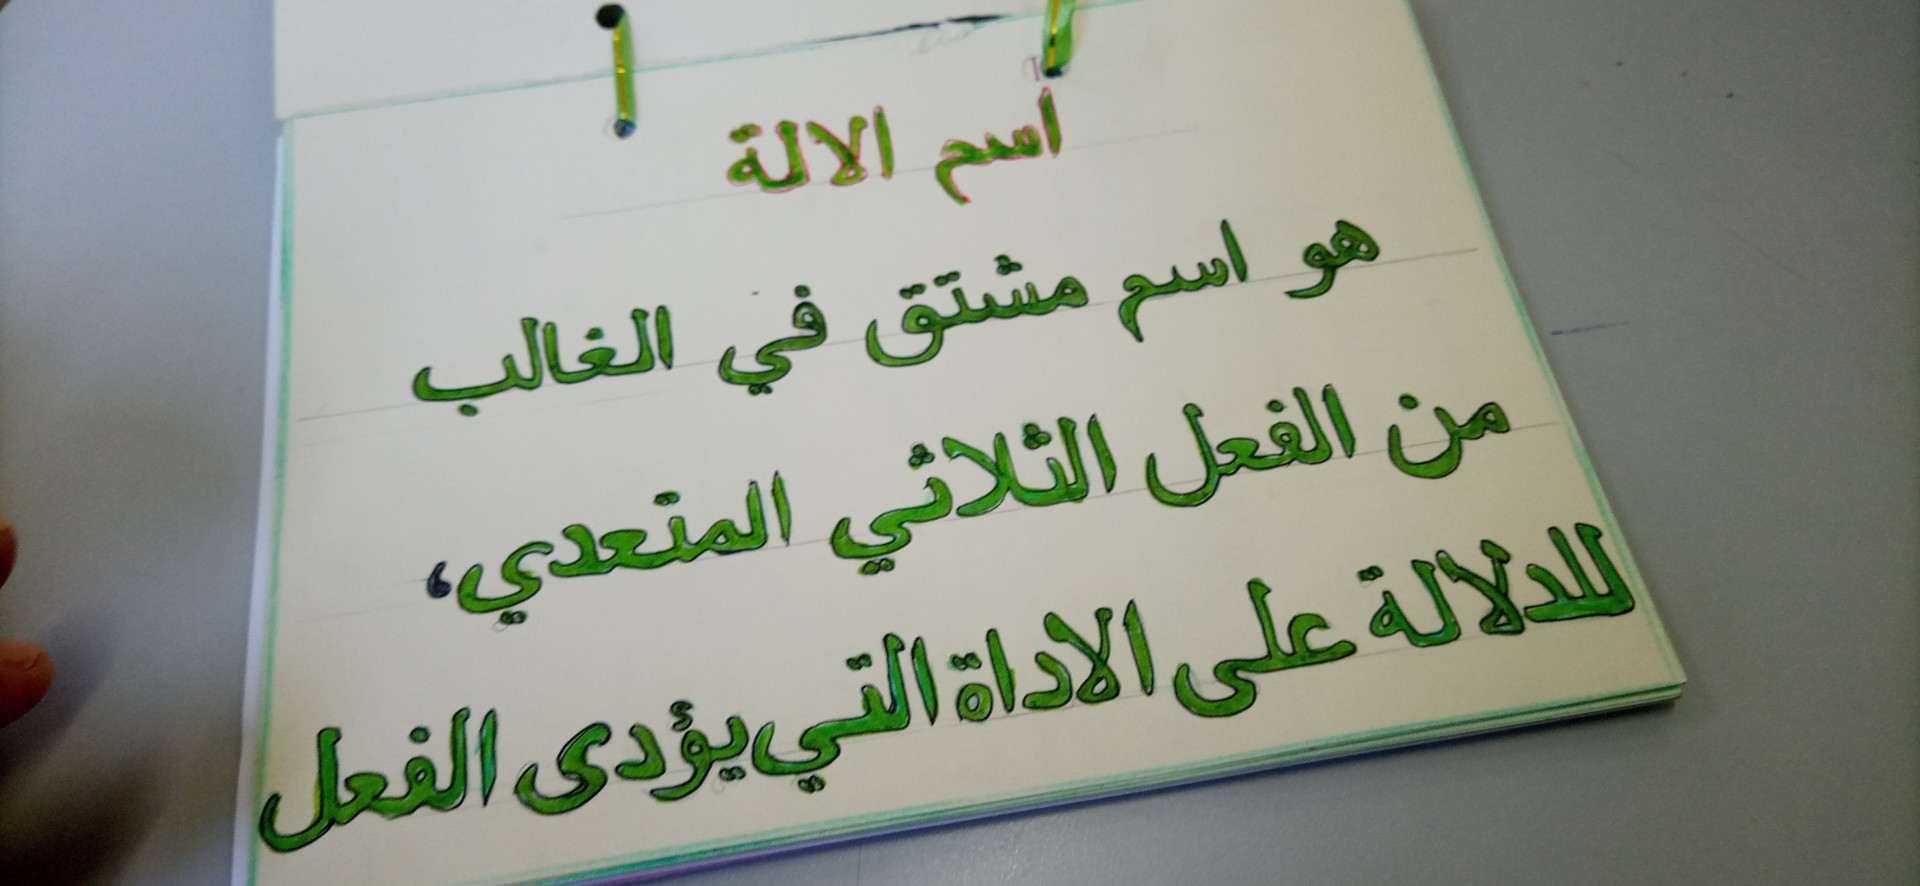 اسم الالة
هو اسم مشتق في الغالب
من الفعل الثلاثي المتعدي،
للدلالة على الاداة التي يؤدى الفعل